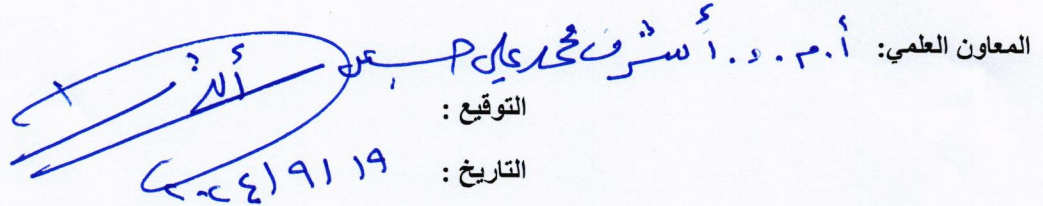 المعاون العلمي: أ.م.د. أشرف محمد علي حسين
التوقيع :
التاريخ : ١٩/٩/٢٠٢٤